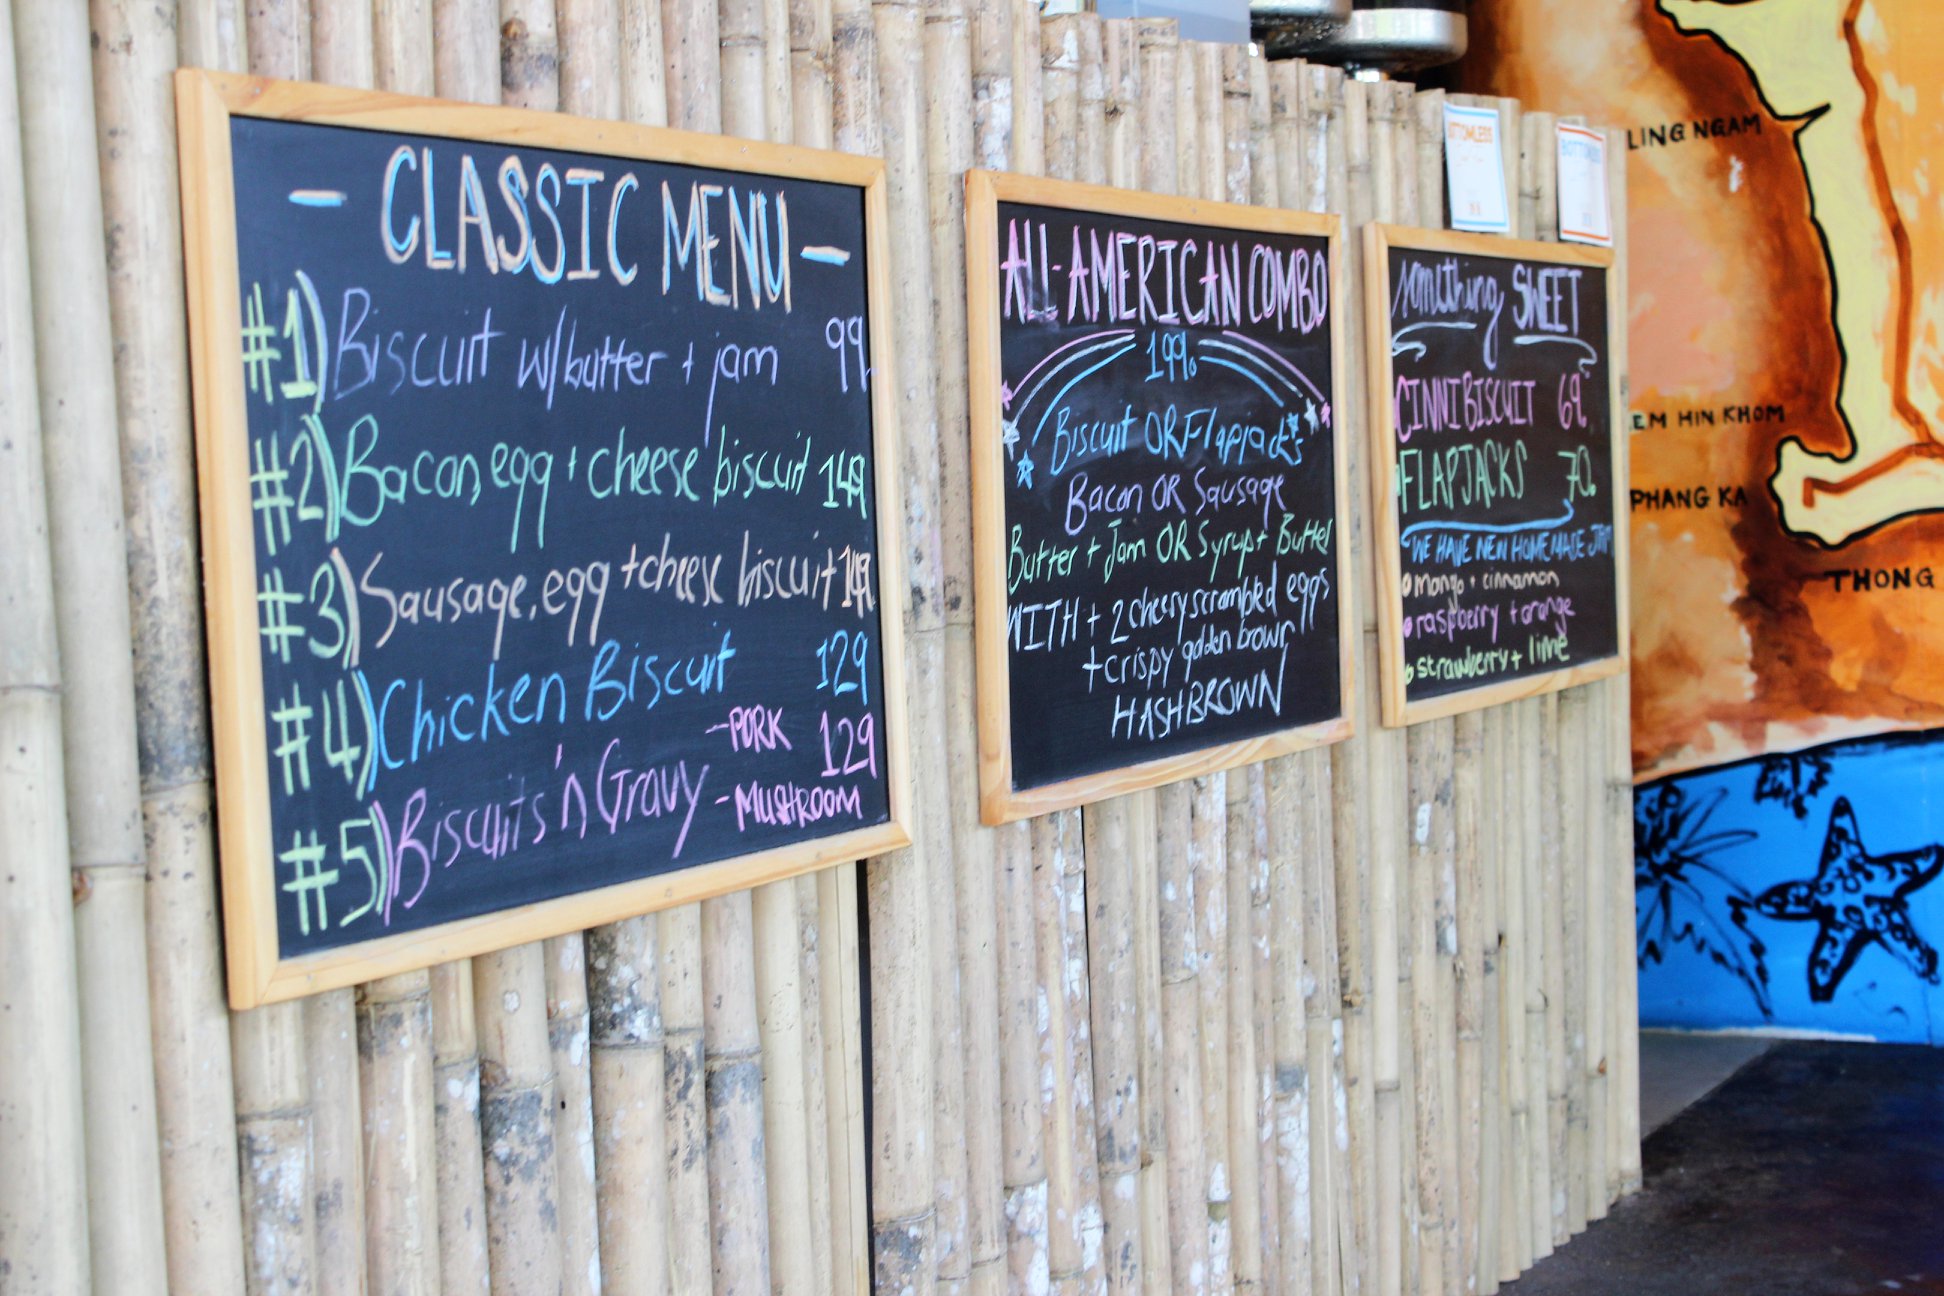 - CLASSIC MENU -
#1) Biscuit w/butter + jam 99
#2) Bacon, egg + cheese biscuit 149
#3) Sausage, egg + cheese biscuit 149
#4) Chicken Biscuit 129
#5) Biscuits 'n Gravy -PORK 129
-MUSHROOM
ALL-AMERICAN COMBO
199
Biscuit OR Flapjacks
Bacon OR Sausage
Butter + Jam OR Syrup + Butter
WITH + 2 cheesy scrambled eggs
+ crispy golden brown
HASHBROWN
something SWEET
CINNIBISCUIT 69
FLAPJACKS 70
WE HAVE NEW HOMEMADE JAM
mango + cinnamon
raspberry + orange
strawberry + lime
BOTTOMLESS
LING NGAM
EM HIN KHOM
PHANG KA
THONG